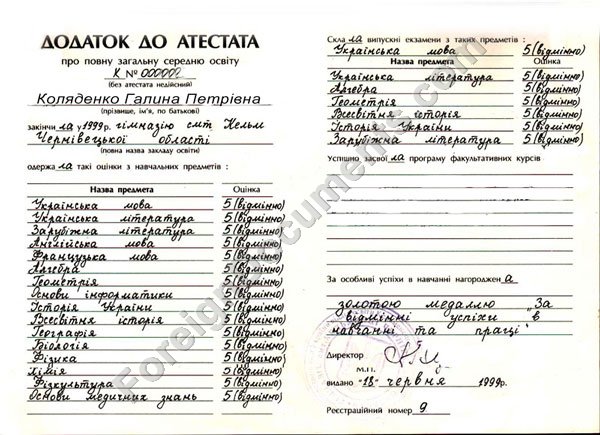 ДОДАТОК ДО АТЕСТАТА
про повну загальну середню освіту
К № 000002
(без атестата недійсний)
Коляденко Галина Петрівна
(прізвище, ім'я, по батькові)
закінчи ла у 1999 р. гімназію смт Кельм
Чернівецької області
(повна назва закладу освіти)
одержа ла такі оцінки з навчальних предметів :
Назва предмета Оцінка
Українська мова 5 (відмінно)
Українська література 5 (відмінно)
Зарубіжна література 5 (відмінно)
Англійська мова 5 (відмінно)
Французька мова 5 (відмінно)
Алгебра 5 (відмінно)
Геометрія 5 (відмінно)
Основи інформатики 5 (відмінно)
Історія України 5 (відмінно)
Всесвітня історія 5 (відмінно)
Географія 5 (відмінно)
Біологія 5 (відмінно)
Фізика 5 (відмінно)
Хімія 5 (відмінно)
Фізкультура 5 (відмінно)
Основи медичних знань 5 (відмінно)
Скла ла випускні екзамени з таких предметів :
Українська мова 5 (відмінно)
Назва предмета Оцінка
Українська література 5 (відмінно)
Алгебра 5 (відмінно)
Геометрія 5 (відмінно)
Всесвітня історія 5 (відмінно)
Історія України 5 (відмінно)
Зарубіжна література 5 (відмінно)
Успішно засвої ла програму факультативних курсів
За особливі успіхи в навчанні нагороджен а
золотою медаллю "За
відмінні успіхи в
навчанні та праці"
Директор
М.П.
видано "18" червня 1999 р.
Реєстраційний номер 9
Foreign-documents.com